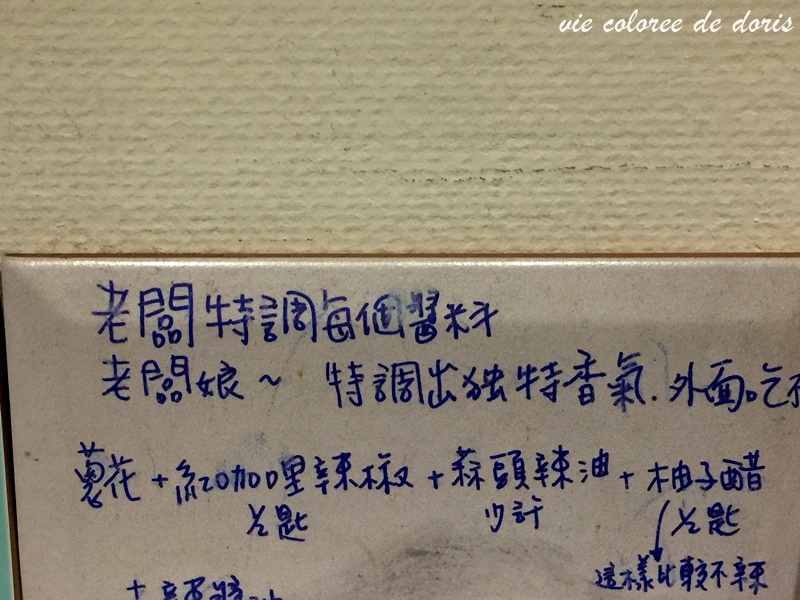 vie coloree de doris
老闆特調每個醬料
老闆娘~ 特調出独特香氣.外面吃不
蔥花+紅咖哩辣椒+蒜頭辣油+柚子醋
½匙 少許 ½匙
這樣比較不辣
+